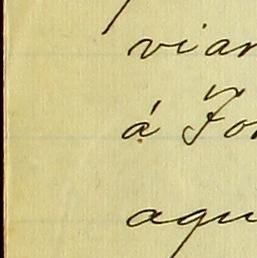 vian
á Fo
aqu